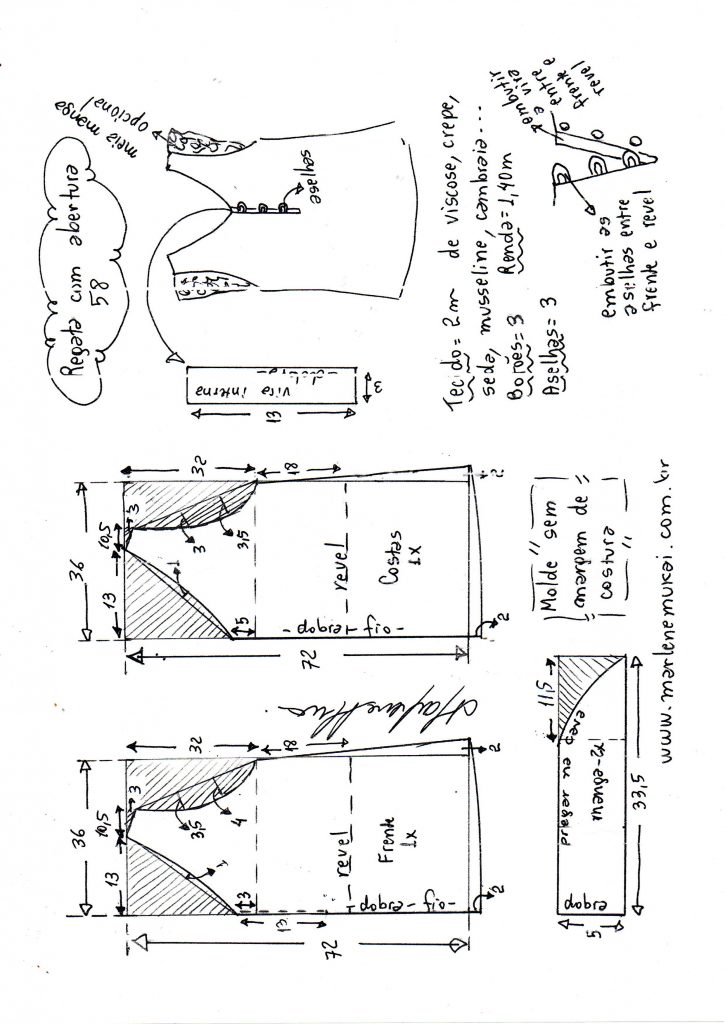 Regata com abertura
58
meia manga
opcional
aselhas
vira interna
dobra
13
3
Tecido = 2m de viscose, crepe,
seda, musseline, cambraia...
Botões = 3 Renda = 1,40m
Aselhas = 3
embutir
a vira
entre
frente e
revel
embutir as
aselhas entre
frente e revel
36
13
10,5
3
32
18
1
3,5
4
3
13
72
revel
Frente
1x
dobra - fio -
2
2
36
13
10,5
3
32
18
1
3
3,5
5
72
revel
Costas
1x
dobra - fio -
2
2
"Molde sem
margem de
costura"
11,5
pregar na cava
manga - 2x
dobra
5
33,5
www.marlenemukai.com.br